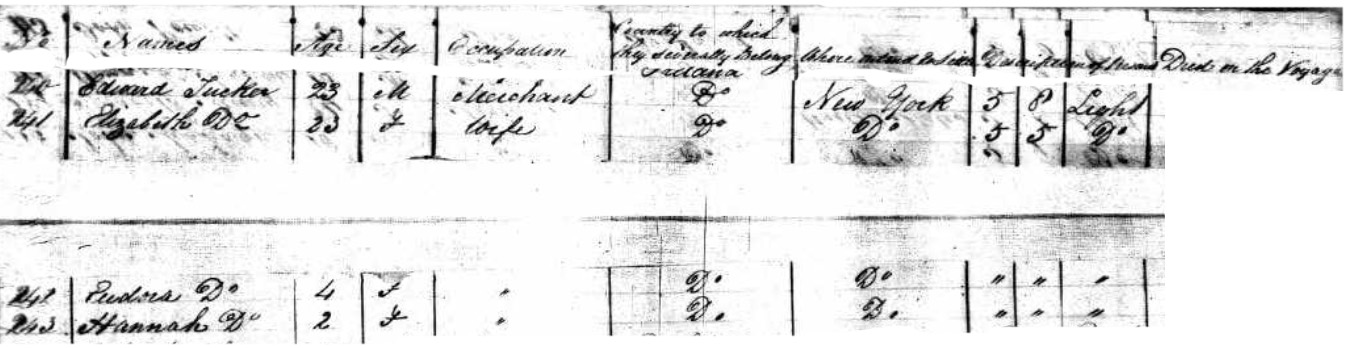 No Names Age Sex Occupation Country to which they severally Belong Where intend to settle Description of Persons Died on the Voyage
Ireland
240 Edward Tucker 23 M Merchant Do New York 5 8 Light
241 Elizabeth Do 23 F Wife Do Do 5 5 Do
242 Eudora Do 4 F " Do Do " " "
243 Hannah Do 2 F " Do. Do. " " "